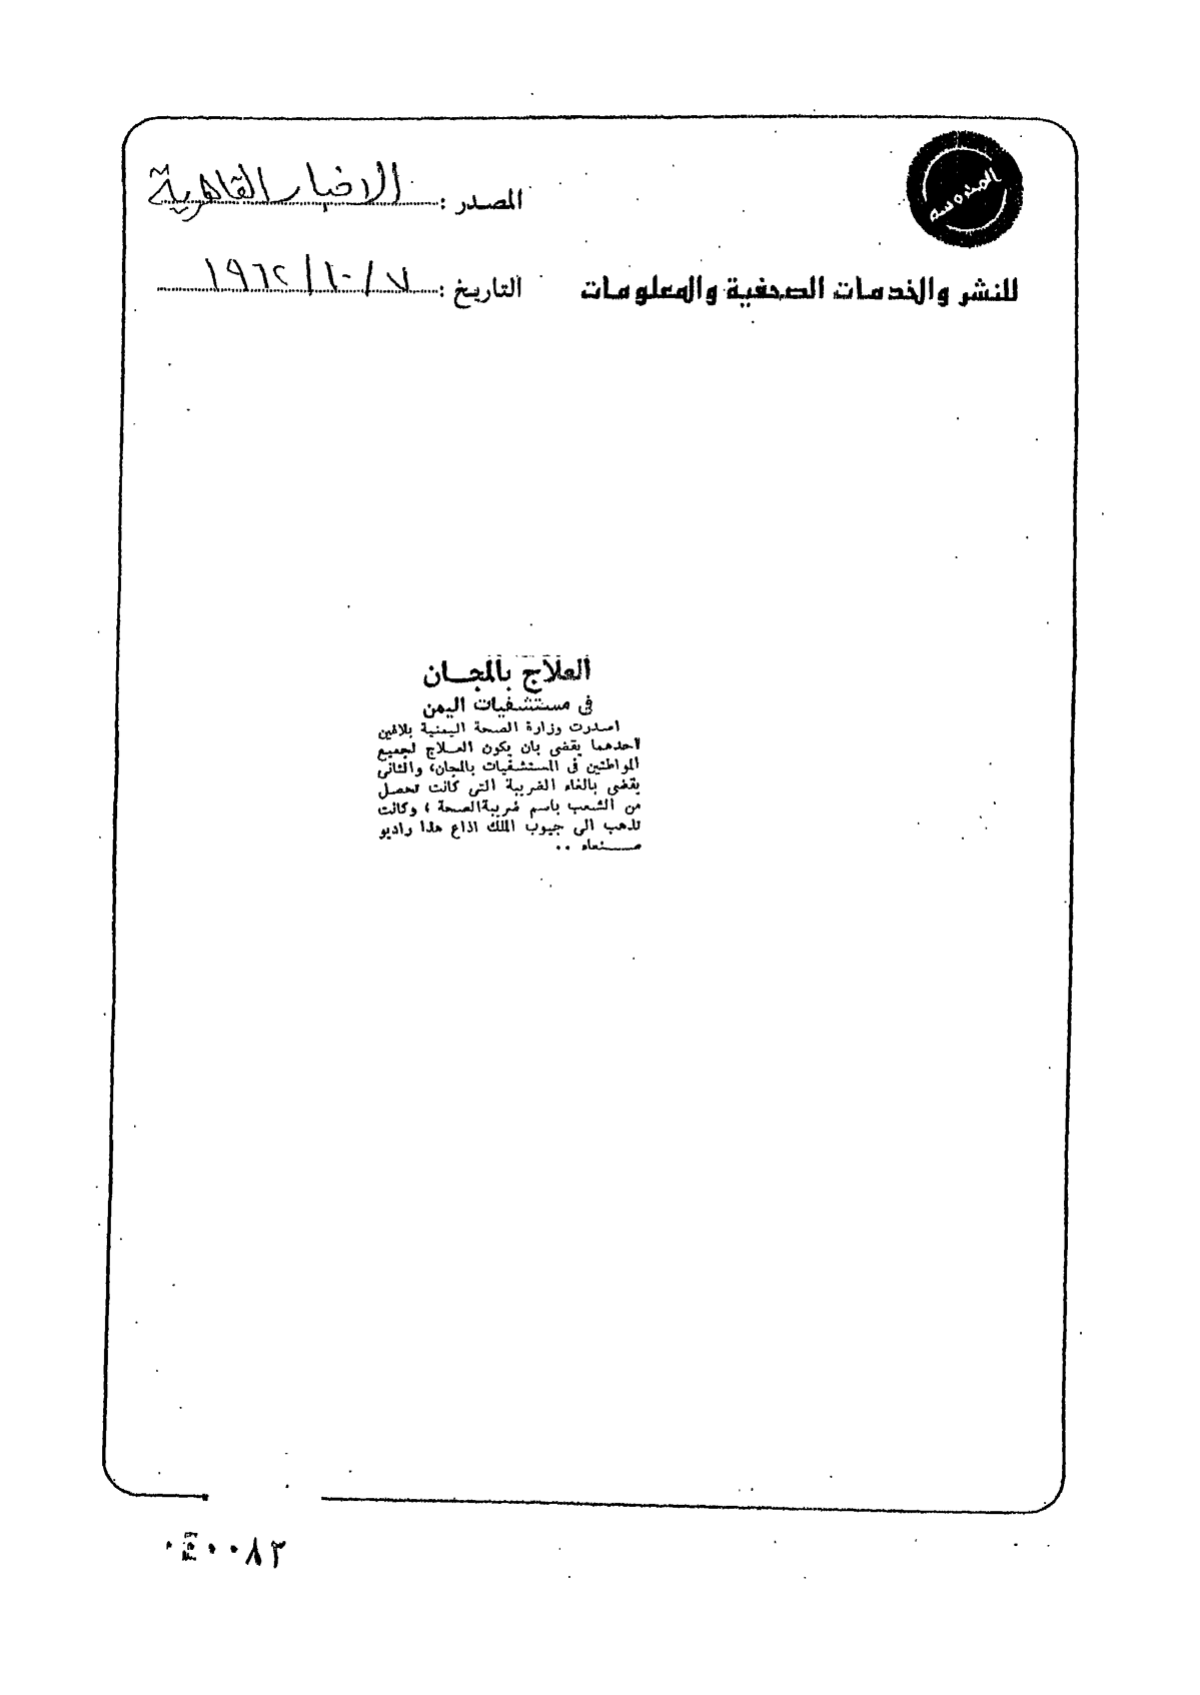 المحروسة
المصدر : الاخبار القاهرية
للنشر والخدمات الصحفية والمعلومات
التاريخ : ٧/١٠/١٩٦٢
العلاج بالمجـان
فى مستشفيات اليمن
اصدرت وزارة الصحة اليمنية بلاغين
احدهما يقضى بان يكون العـلاج لجميع
المواطنين فى المستشفيات بالمجان، والثانى
يقضى بالغاء الضريبة التى كانت تحصل
من الشعب باسم ضريبةالصحة ، وكانت
تذهب الى جيوب الملك اذاع هذا راديو
صـنعاء ..